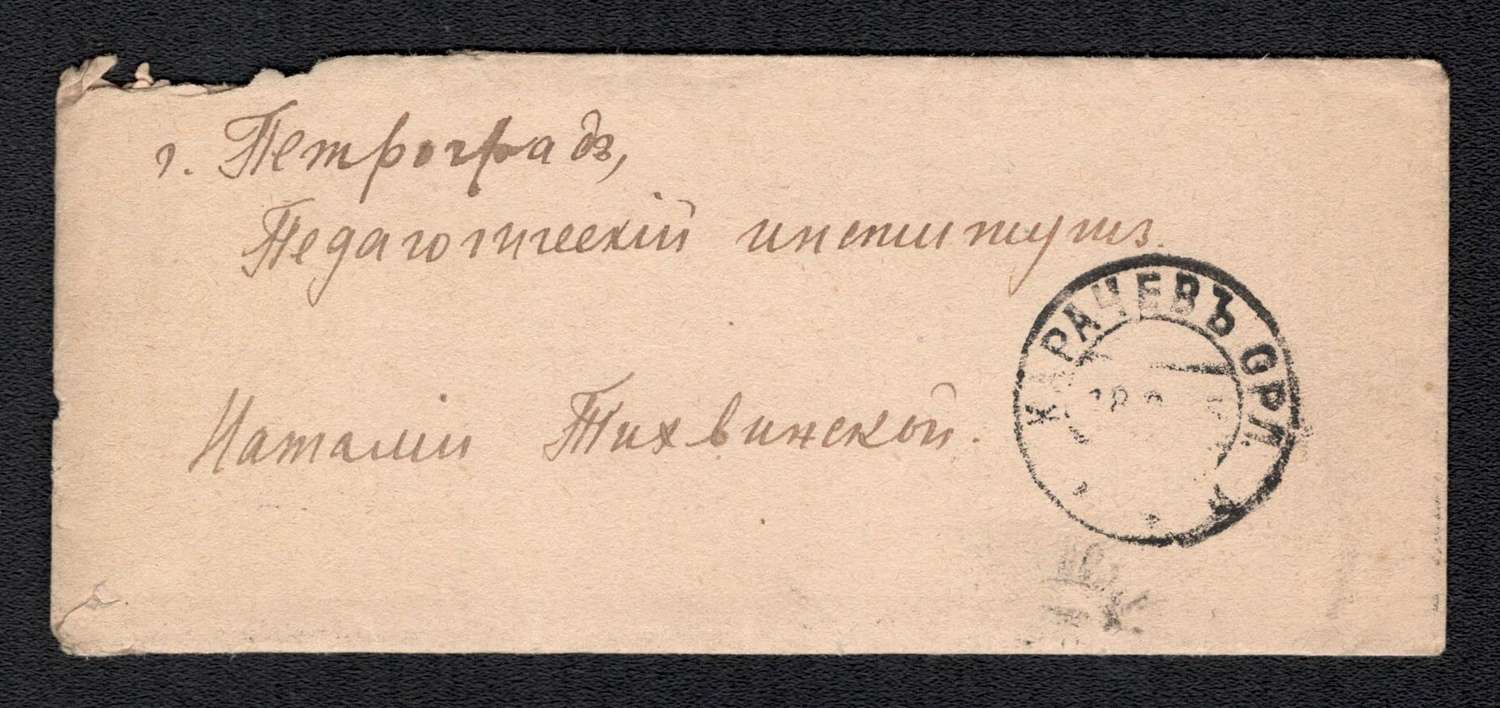 г. Петроградъ,
Педагогическій институтъ.
Наталіи Тихвинской.
КАРАЧЕВЪ ОРЛ.